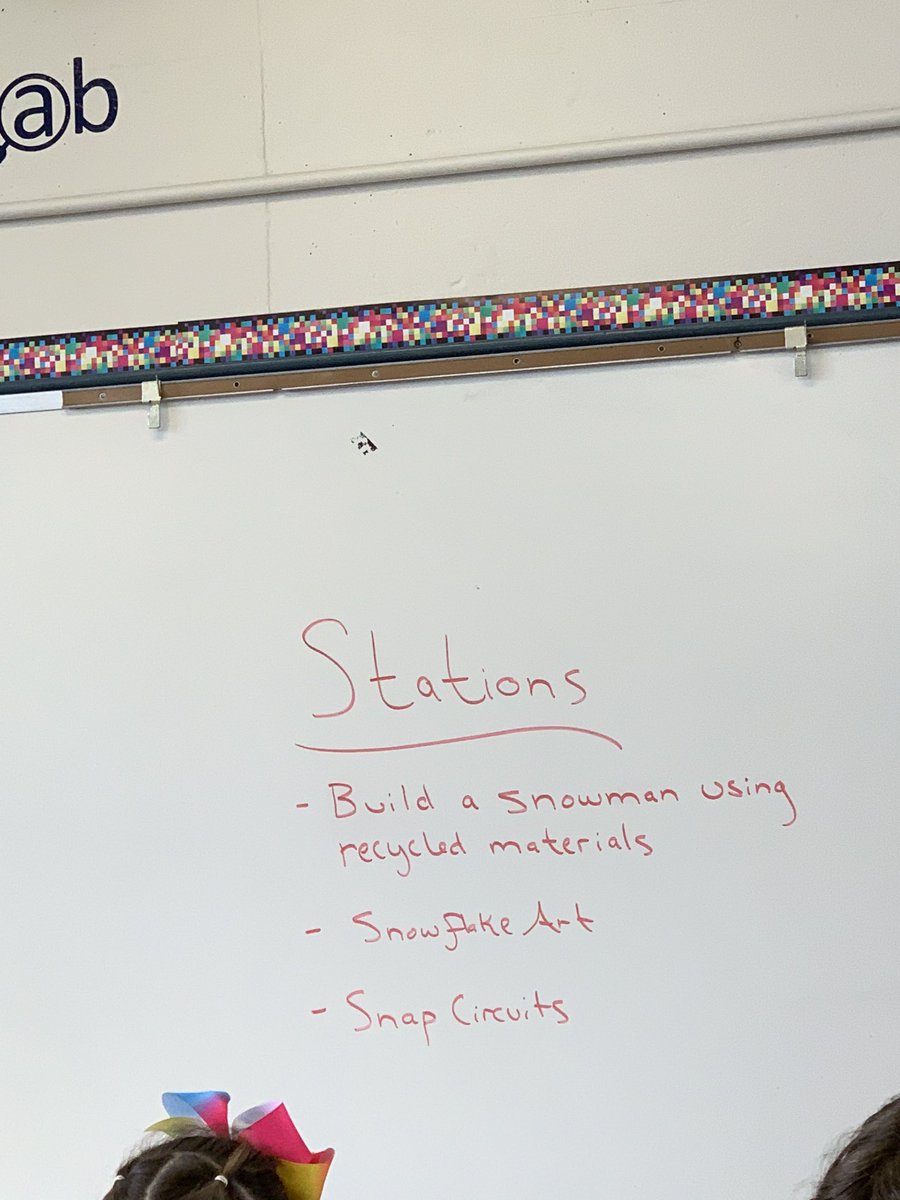 @b
Stations
- Build a snowman using
recycled materials
- Snowflake Art
- Snap Circuits